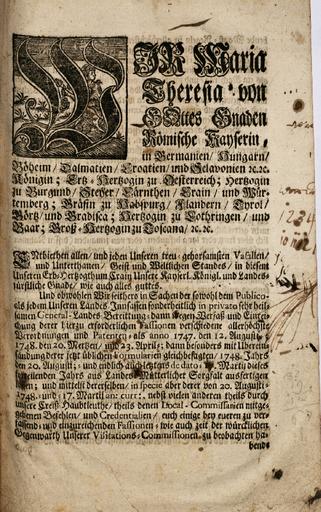 WJR Maria
Theresia von
GOttes Gnaden
Römische Kayserin,
in Germanien / Hungarn /
Böheim / Dalmatien / Croatien / und Sclavonien ꝛc. ꝛc.
Königin; Ertz-Hertzogin zu Oesterreich; Hertzogin
zu Burgund / Steyer / Cärnthen / Crain / und Wür-
temberg; Gräfin zu Habspurg / Flandern / Tyrol /
Görtz / und Gradisca; Hertzogin zu Lothringen / und
Baar; Groß-Hertzogin zu Toscana / ꝛc. ꝛc.
Entbiethen allen / und jeden Unseren treu-gehorsamsten Vasallen /
und Unterthanen / Geist und Weltlichen Standes / in diesem
Unseren Erb-Hertzogthum Crain Unsere Kayserl. Königl. und Landes-
fürstliche Gnade / wie auch alles guttes.
Und obwohlen Wir seithero in Sachen der sowohl dem Publico-
als jedem Unseren Landes-Insassen sonderheitlich in privato sehr heil-
samen General-Landes-Bereittung; dann wegen Verfass und Einrei-
chung derer hierzu erforderlichen Fassionen verschiedene allerhöchste
Verordnungen und Patenten; als anno 1747. den 12. Augusti,
1748. den 20. Mertzen / und 23. April; dann besonders mit Uberein-
sendung derer jetzt üblichen Formularien gleichbesagten / 1748. Jahrs
den 20. Augusti; und endlich auch letztens de dato 17. Martii dieses
fürseyenden Jahrs aus Landes-Mütterlicher Sorgfalt ausfertigen
lassen; und mittelst derenselben / in specie aber derer von 20. Augusti
1748. und 17. Martii an. curr: nebst vielen anderen theils durch
unsere Creiß Haubtleuthe / theils denen Local-Commissarien mitge-
gebenen Befehlen / und Credentialien / euch einige bey eueren zu ver-
fassend- und einzureichenden Fassionen, wie auch zeit der würcklichen
Gegenwarth Unserer Visitations-Commissionen zu beobachten ha-
bende